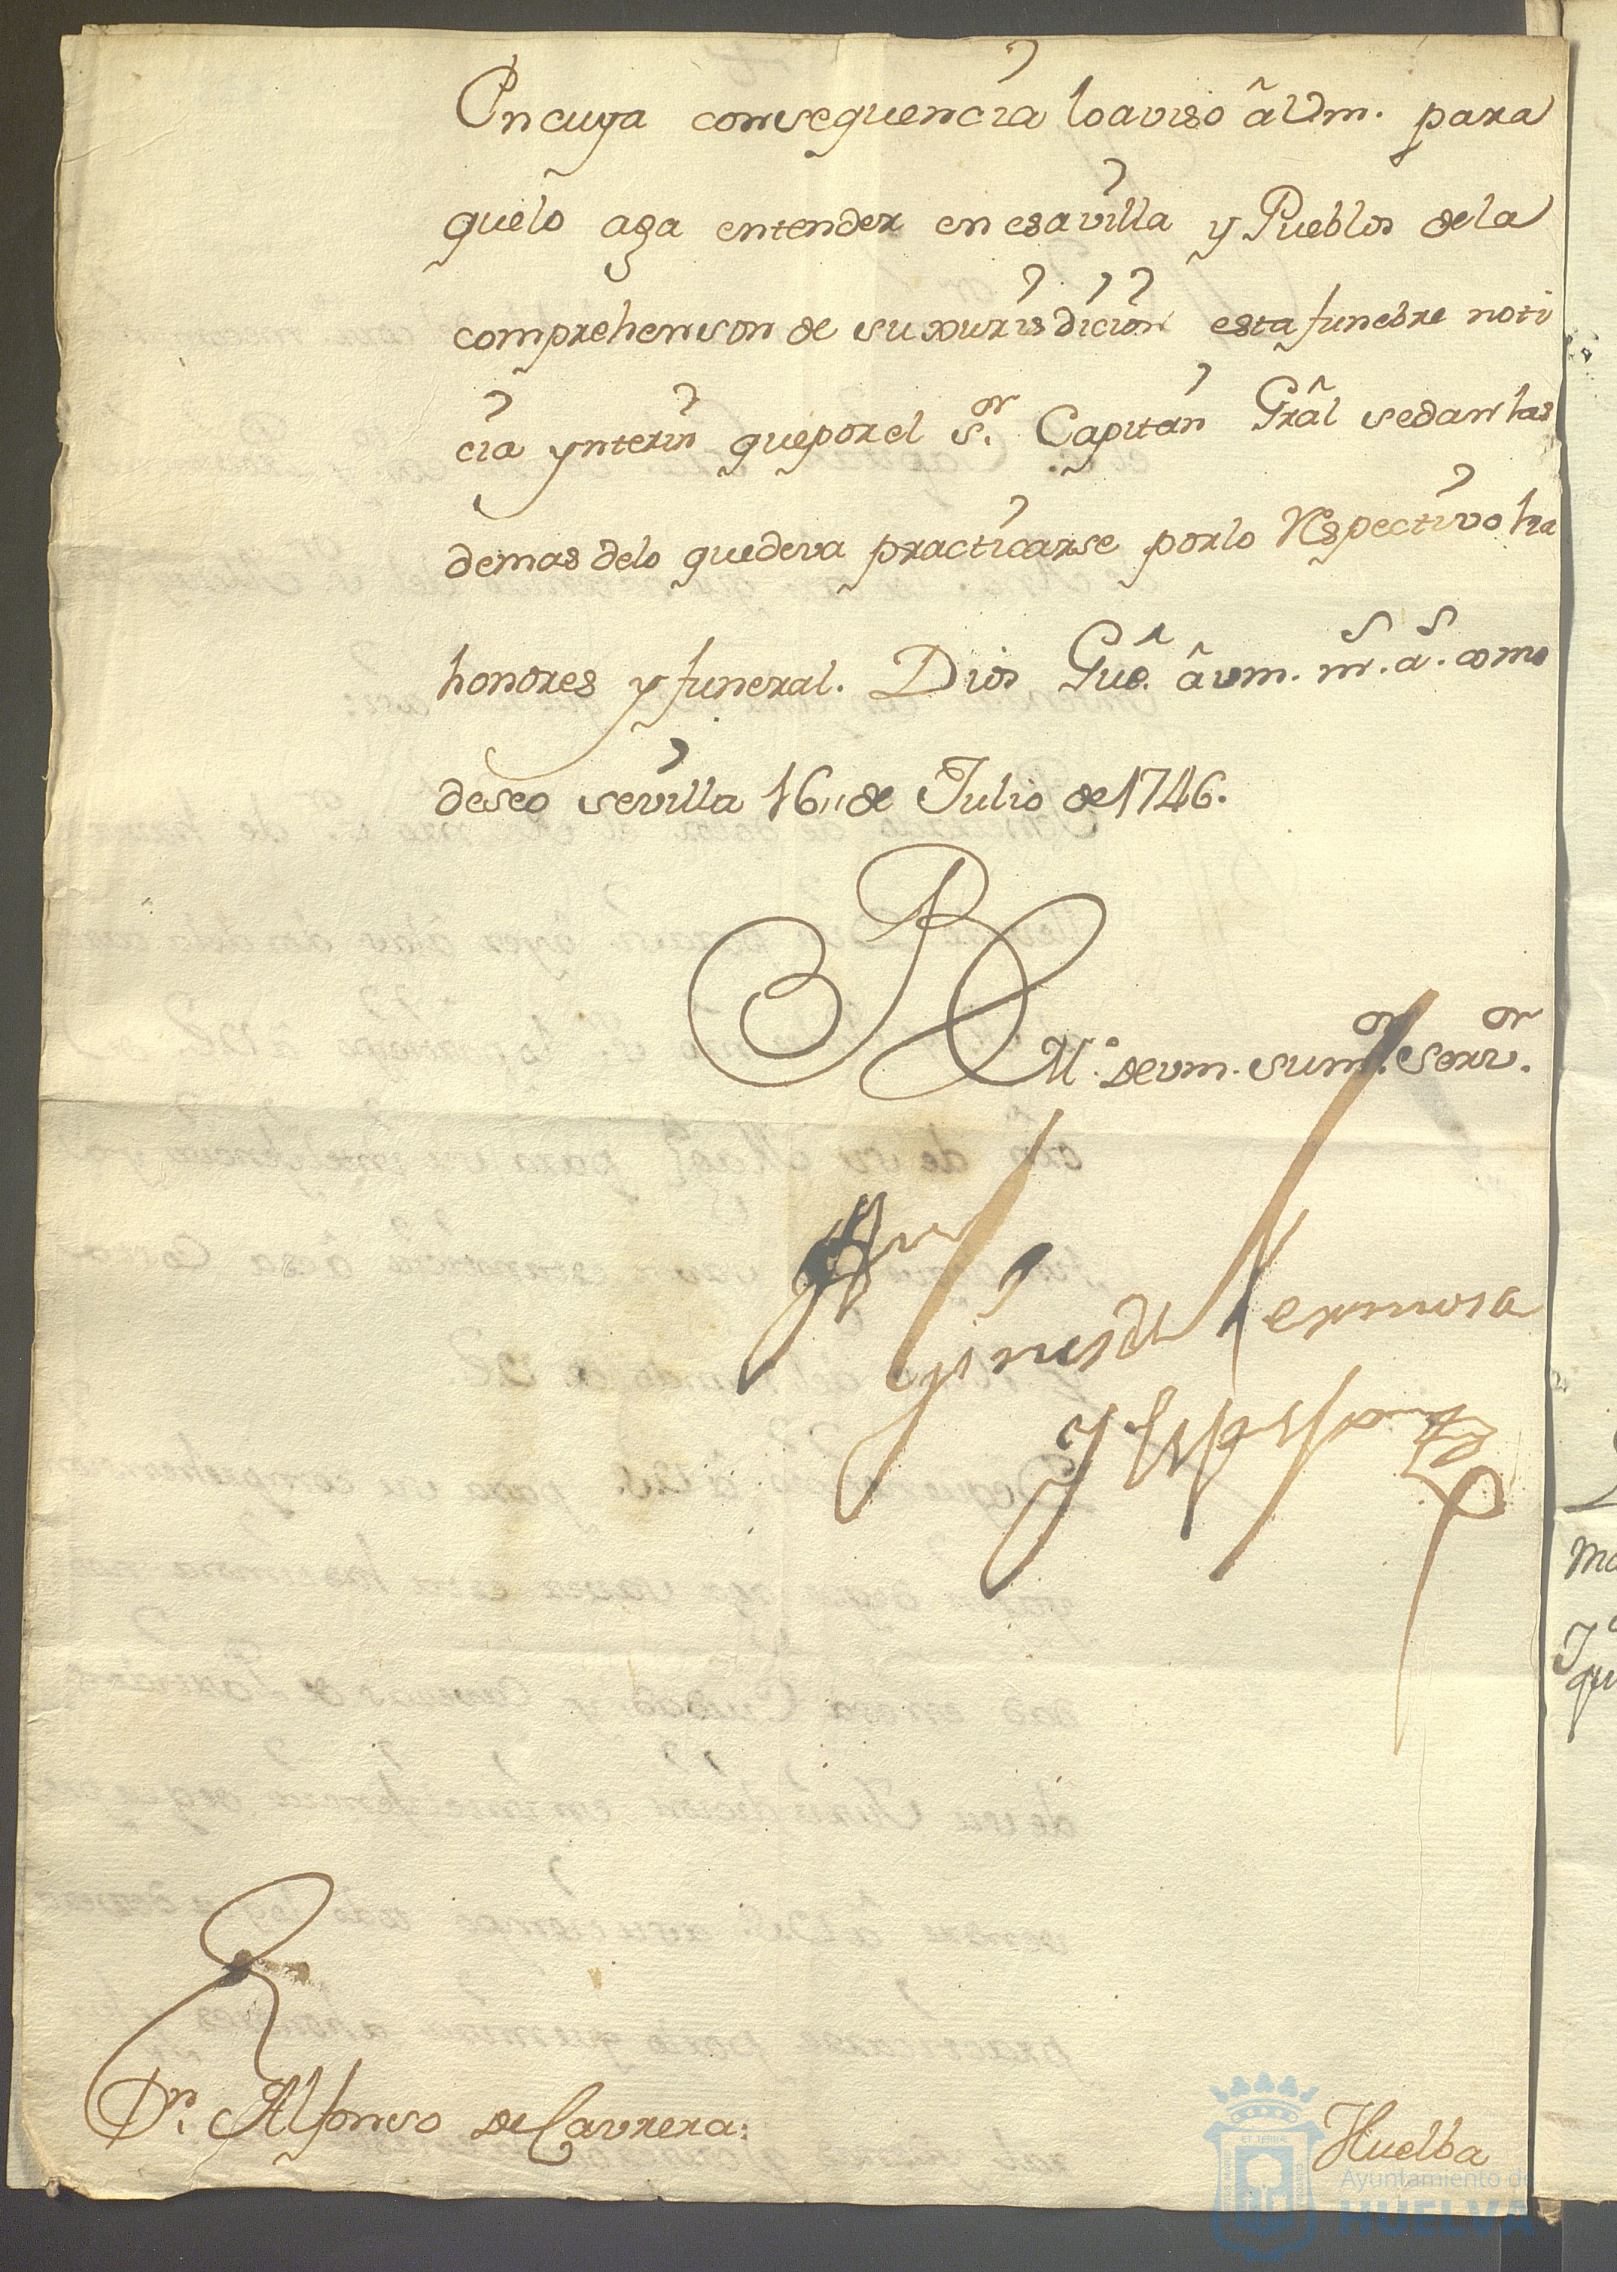 En cuya consequencia lo aviso â Vm. para
quelo aga entender en esa villa y Pueblos dela
comprehenson de su xurisdicion esta funebre noti
cia ynterin que por el S.or Capitan Grâl se dan las
demas delo que deva practicarse porlo Respectivo ha
honores y funeral. Dios Gûe. â vm. m.s a.s como
deseo sevilla 16,, de Julio de 1746.
BL
M.o de vm. su m.or serv.or
Gines de Hermosa
y Espejo
D.n Alfonso de Cavrera:
Huelba
Ayuntamiento de
HUELVA